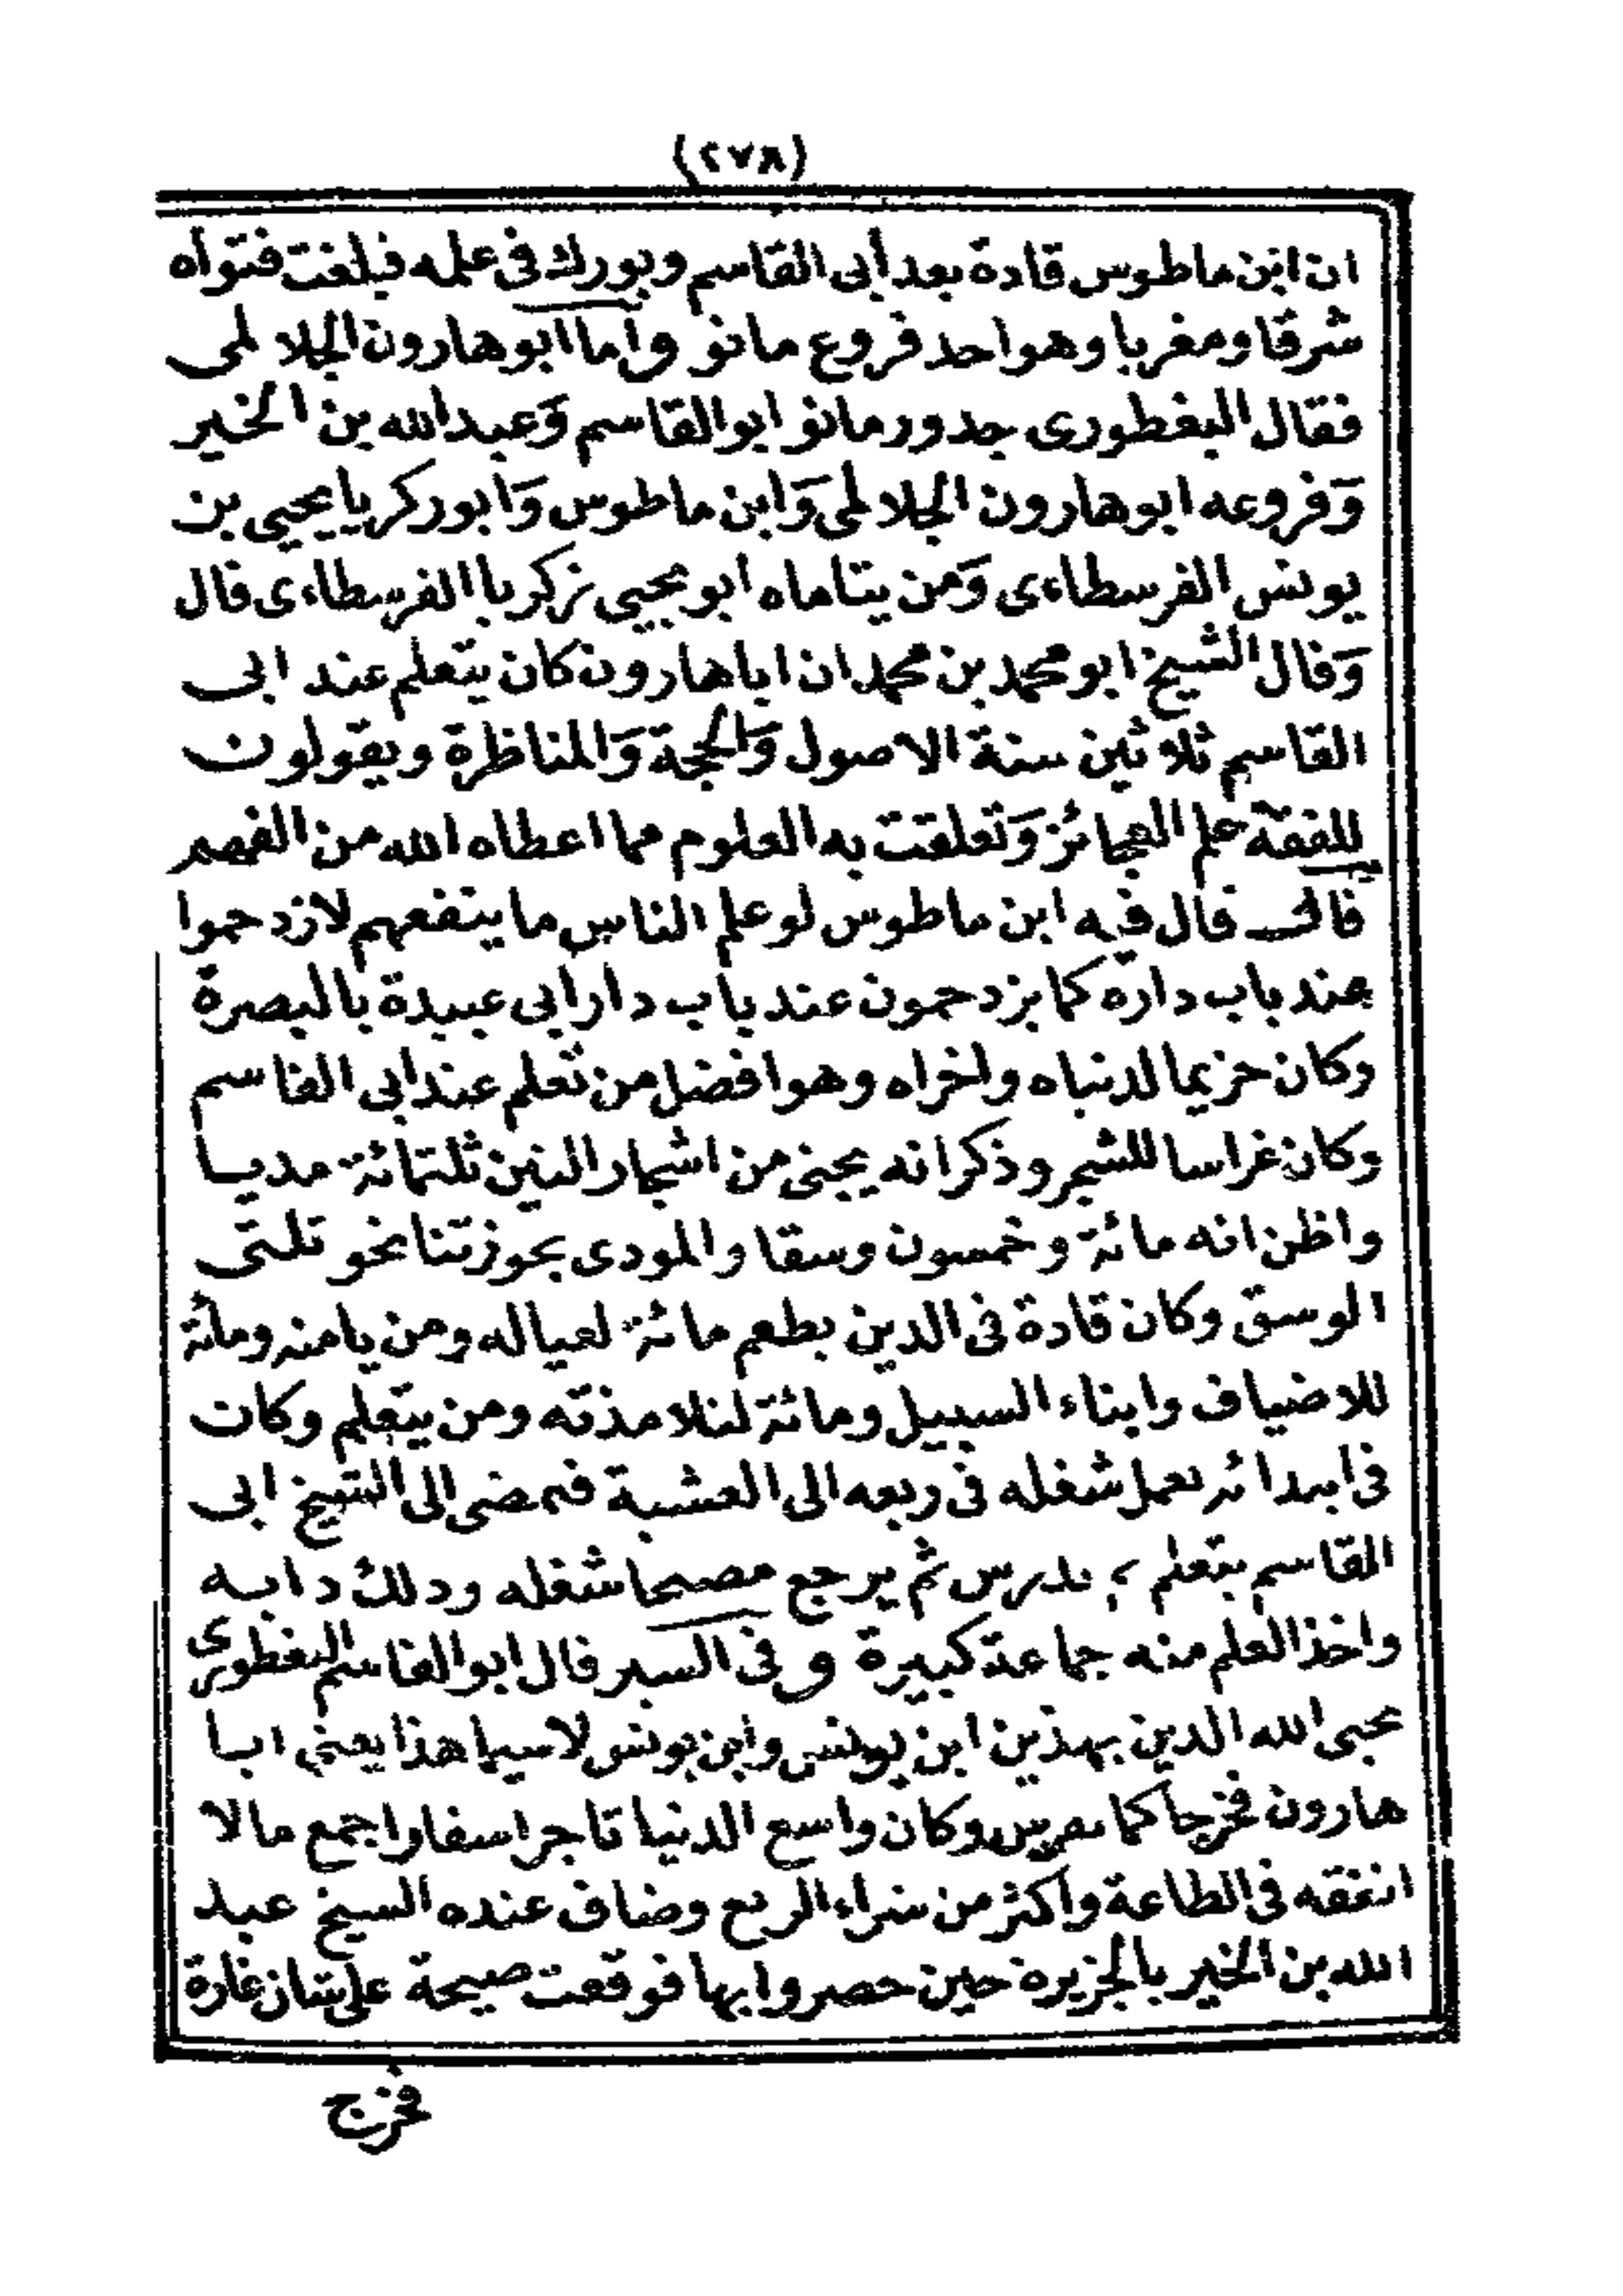 (٢٧٨)
ان ابن ماطوس قادة بعد أبى القاسم وبورك فى علمه فبلغت فتواه
شرقا ومغربا وهو احد فروع مانو واما ابو هارون الجلالمى
فقال البغطورى جدور مانو ابو القاسم وَعبد الله بن الخير
وَفروعه ابو هارون الجلالمى وَابن ماطوس وَابو زكريا يحيى بن
يونس الفرسطاءى وَمن يتاماه ابو يحيى زكريا الفرسطاءى قال
وَقال الشيخ ابو محمد بن محمد ان ابا هارون كان يتعلم عند ابى
القاسم ثلاثين سنة الاصول وَالحجة وَالمناظرة ويقولون
للفقه علم العجائز وَتعلقت به العلوم مما اعطاه الله من الفهم
قال قال فيه ابن ماطوس لو علم الناس ما ينفعهم لازدحموا
عند باب داره كما يزدحمون عند باب دار ابى عبيدة بالبصرة
وكان حزيما لدنياه ولخراه وهو افضل من تعلم عند ابى القاسم
وكان غراسا للشجر وذكر انه يجنى من اشجار التين ثلتمائة مديا
واظن انه مائة وخمسون وسقا والمودى بجوزتنا نحو ثلتى
الوسق وكان قادة فى الدين يطعم مائة لعياله ومن يامنه ومائة
للاضياف وابناء السبيل ومائة لتلامذته ومن يتعلم وكان
فى ابتدائه يعمل شغله فى ربعه الى العشية فيمضى الى الشيخ ابى
القاسم يتعلم يدرس ثم يرجع مصبحا شغله وذلك دابه
واخذ العلم منه جماعة كبيرة وفى السير قال ابو القاسم البغطورى
يحيى الله الدين بهذين ابن يونس وابن يونس لاسيما هذا يعنى ابا
هارون فخرجا كما تفرس وكان واسع الدنيا تاجرا سفاوا جمع مالا
انفقه فى الطاعة واكثر من شراء الربع وضاف عنده الشيخ عبد
الله بن الخير بالجزيرة حين حصروا بها فوقعت صيحة على شان غارة
فخرج